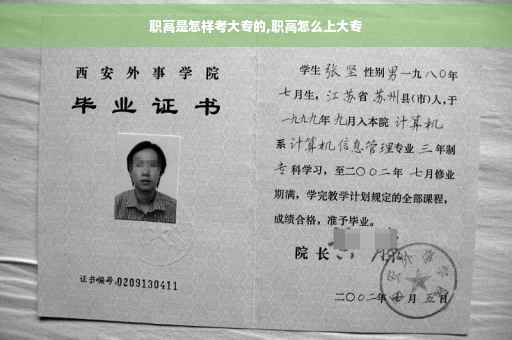 职高是怎样考大专的,职高怎么上大专
西安外事学院
毕业证书
证书编号:0209130411
学生张坚性别男一九八〇年
七月生,江苏省苏州县(市)人,于
一九九九年九月入本院计算机
系计算机信息管理专业三年制
专科学习,至二〇〇二年七月修业
期满,学完教学计划规定的全部课程,
成绩合格,准予毕业。
院长
二〇〇二年 月五日